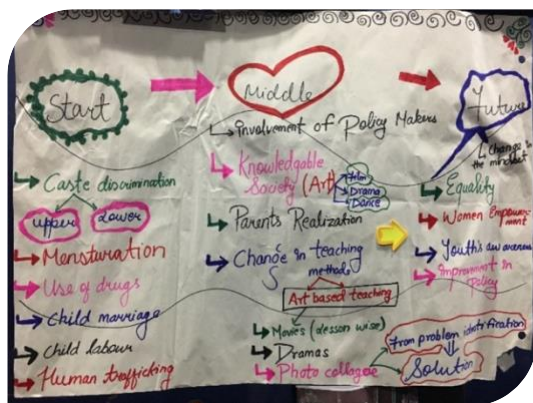 Start
Caste discrimination
upper Lower
Mensturation
Use of drugs
Child marriage
Child labour
Human trafficking
Middle
Involvement of Policy Makers
Knowledgable
Society (Art)
Drama
Dance
Parents Realization
Change in teaching
methods
Art based teaching
Movies (lesson wise)
Dramas
Photo collage
from problem identification
Solution
Future
Change in
the mindset
Equality
Women Empowerment
Youth's awareness
Improvment in
Policy